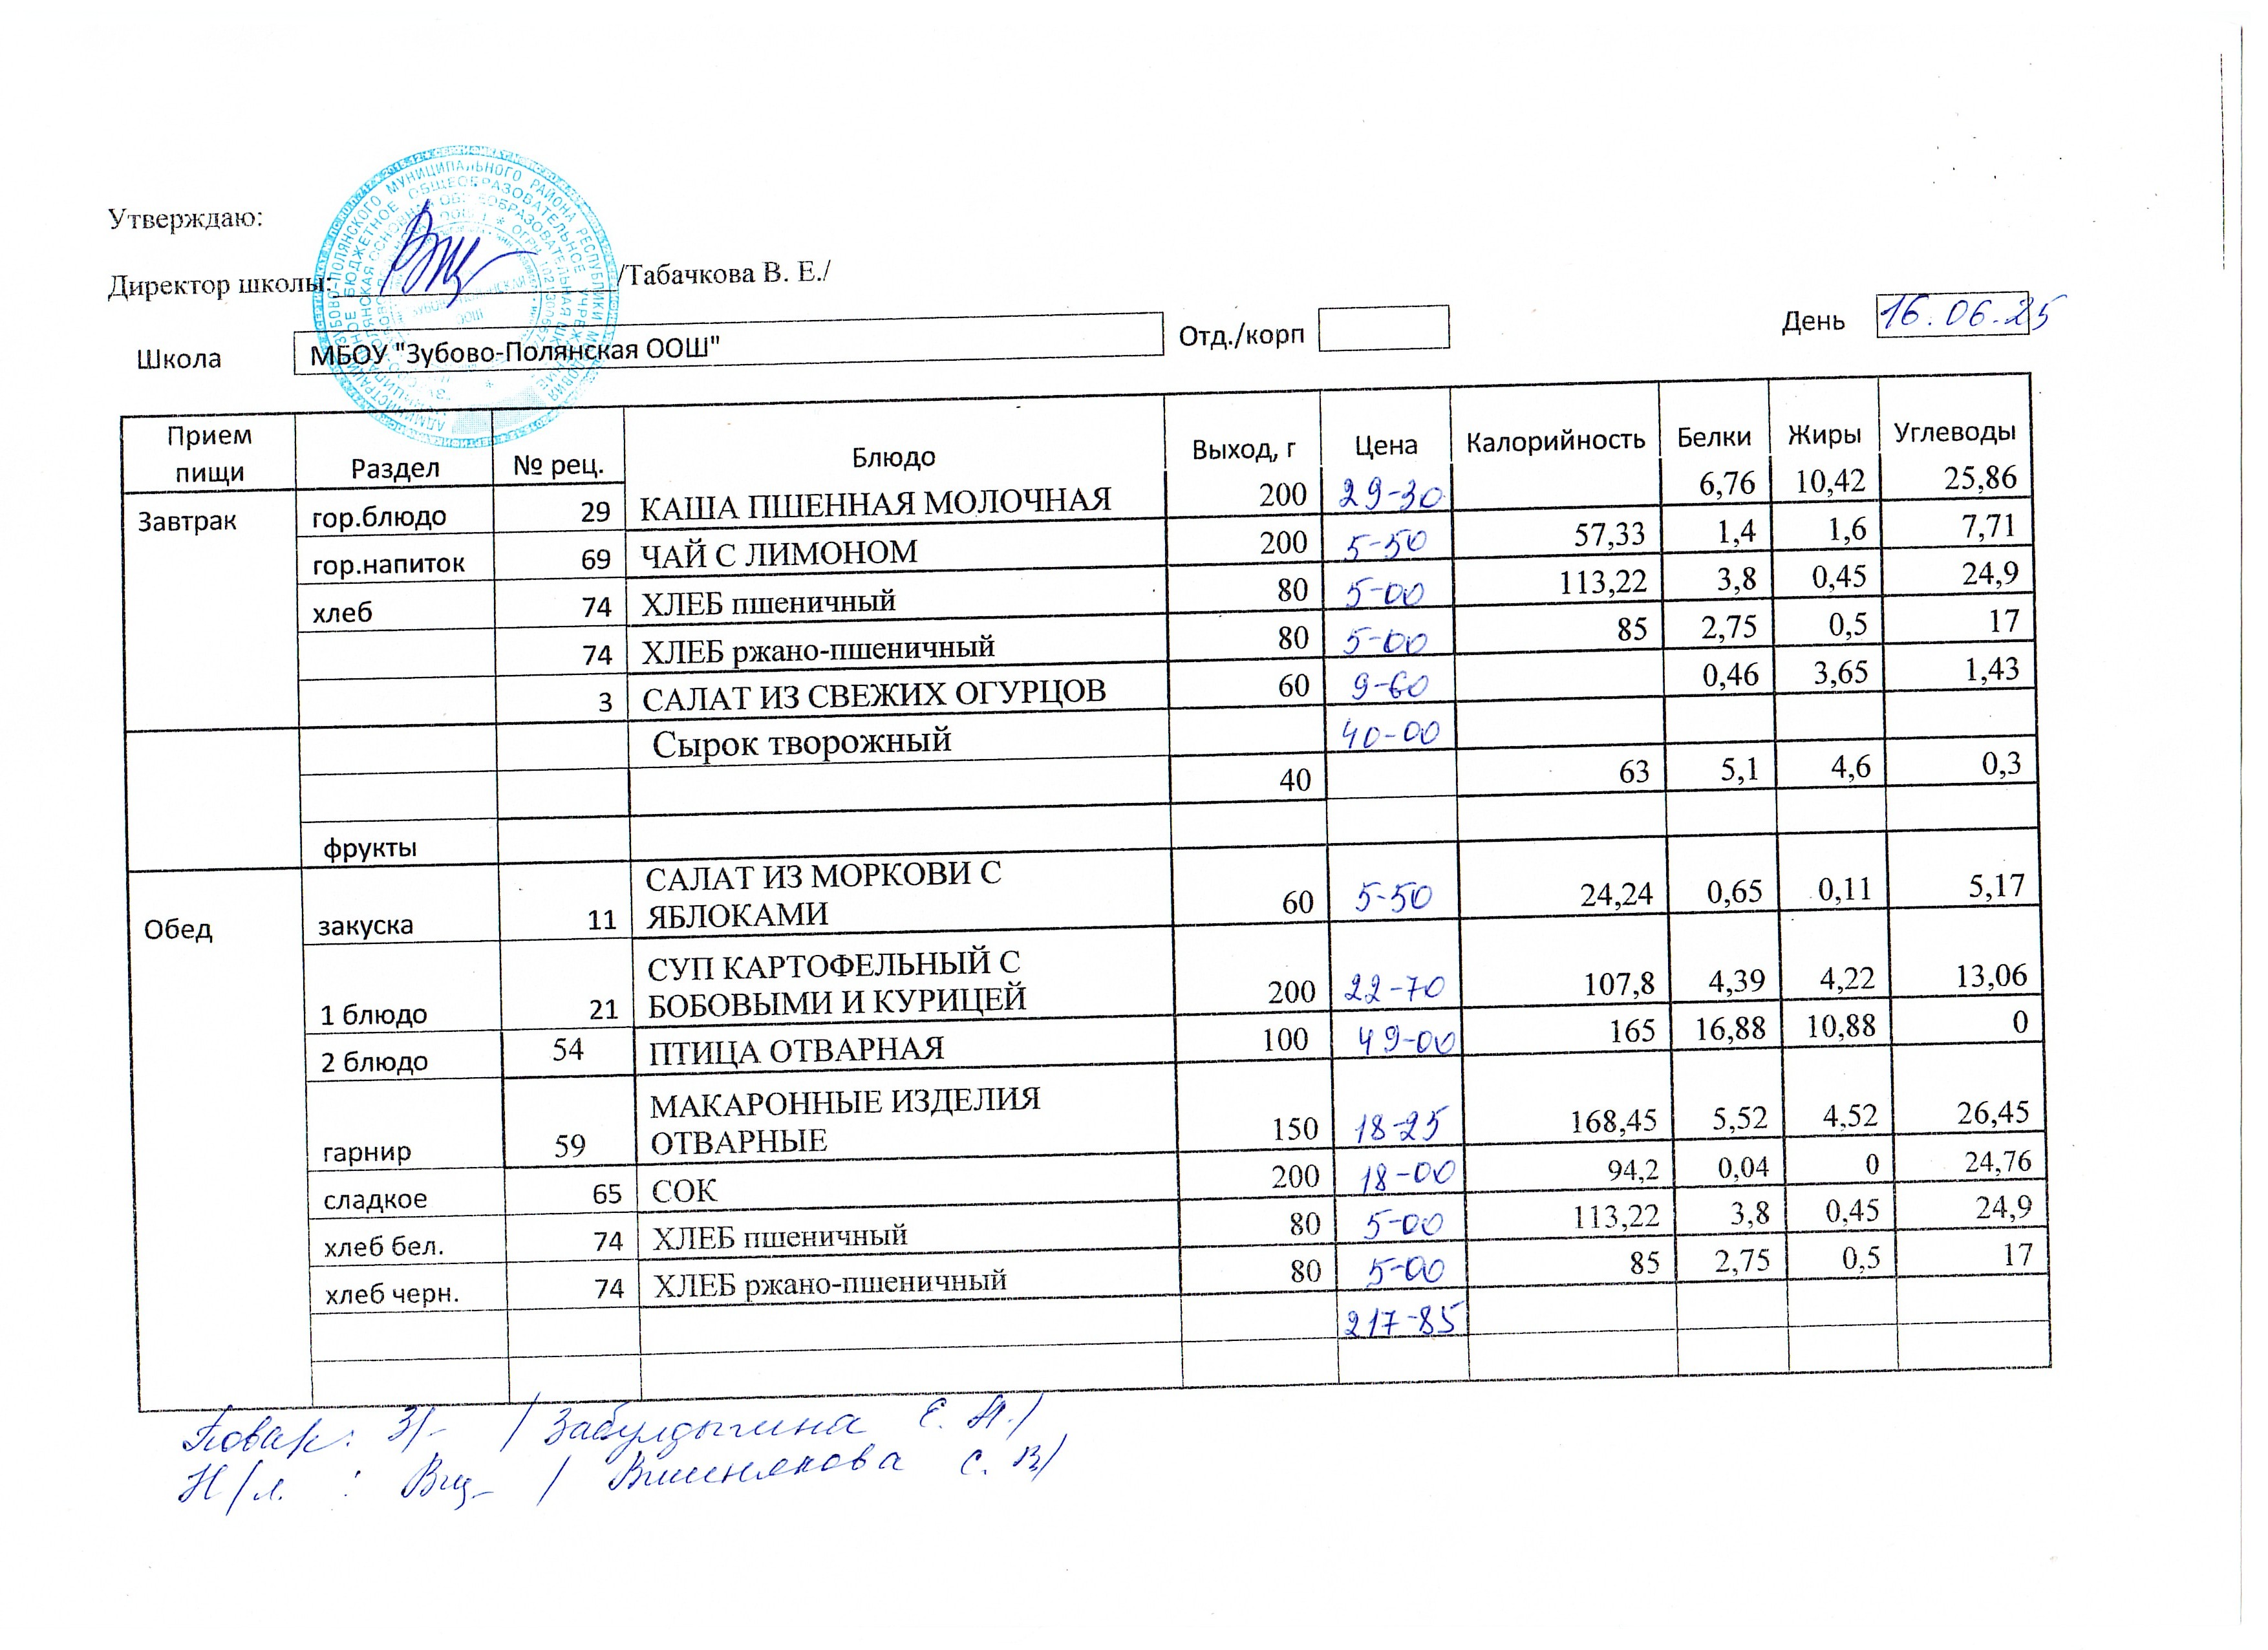 Утверждаю:
Директор школы: /Табачкова В. Е./
Школа МБОУ "Зубово-Полянская ООШ" Отд./корп День 16.06.25
Прием пищи Раздел № рец. Блюдо Выход, г Цена Калорийность Белки Жиры Углеводы
Завтрак гор.блюдо 29 КАША ПШЕННАЯ МОЛОЧНАЯ 200 29-30 6,76 10,42 25,86
гор.напиток 69 ЧАЙ С ЛИМОНОМ 200 5-50 57,33 1,4 1,6 7,71
хлеб 74 ХЛЕБ пшеничный 80 5-00 113,22 3,8 0,45 24,9
74 ХЛЕБ ржано-пшеничный 80 5-00 85 2,75 0,5 17
3 САЛАТ ИЗ СВЕЖИХ ОГУРЦОВ 60 9-60 0,46 3,65 1,43
Сырок творожный 40-00
40 63 5,1 4,6 0,3
фрукты
Обед закуска 11 САЛАТ ИЗ МОРКОВИ С
ЯБЛОКАМИ 60 5-50 24,24 0,65 0,11 5,17
1 блюдо 21 СУП КАРТОФЕЛЬНЫЙ С
БОБОВЫМИ И КУРИЦЕЙ 200 22-70 107,8 4,39 4,22 13,06
2 блюдо 54 ПТИЦА ОТВАРНАЯ 100 49-00 165 16,88 10,88 0
гарнир 59 МАКАРОННЫЕ ИЗДЕЛИЯ
ОТВАРНЫЕ 150 18-25 168,45 5,52 4,52 26,45
сладкое 65 СОК 200 18-00 94,2 0,04 0 24,76
хлеб бел. 74 ХЛЕБ пшеничный 80 5-00 113,22 3,8 0,45 24,9
хлеб черн. 74 ХЛЕБ ржано-пшеничный 80 5-00 85 2,75 0,5 17
217-85
Повар: / Забулдыгина Е. Н./
/ Вишнякова С. В/